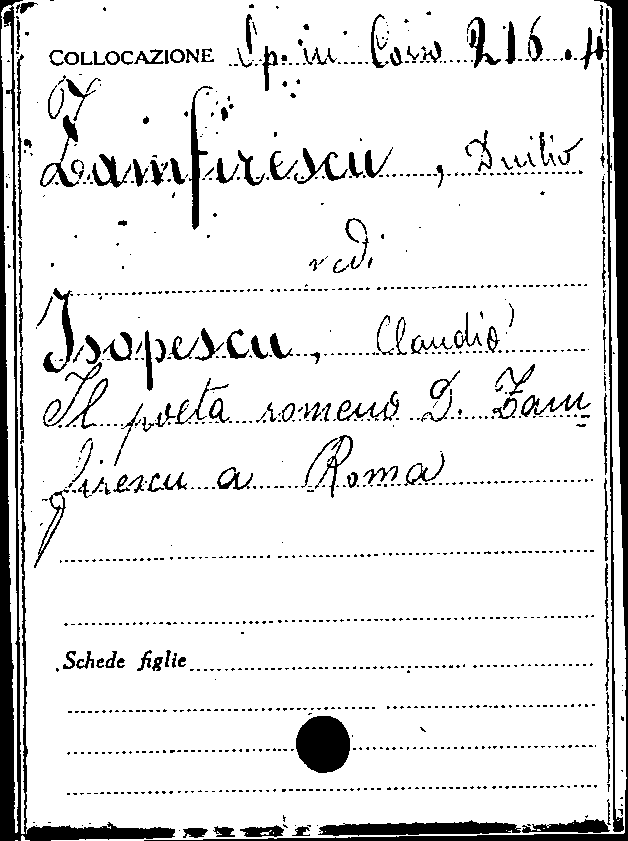 COLLOCAZIONE Sp. in Corso 216.4
Zamfirescu, Duilio
vedi
Isopescu, Claudio
Il poeta romeno D. Zam=
firescu a Roma
Schede figlie